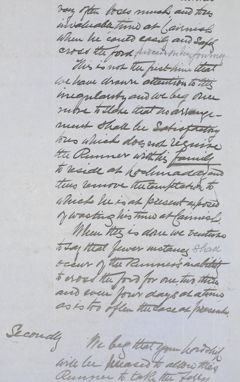 ray often loses much and this
invaluable time at Cairnish
when he could easily and safely
cross the ford
This is not the first time that
we have drawn attention to this
irregularity and we beg once
more to state that no arrange-
ment shall be Satisfactory
to us which does not require
the Runner with his family
to reside at Lochmaddy and
thus remove the temptation to
which he is at present exposed
of wasting his time at Cairnish.
When this is done we venture
to say that fewer instances
occur of the Runner's inability
to cross the ford for one two three
and even four days at a time
as is too often the case at present.
Secondly We beg that your Lordship
will be pleased to allow this
Runner to take the ferry